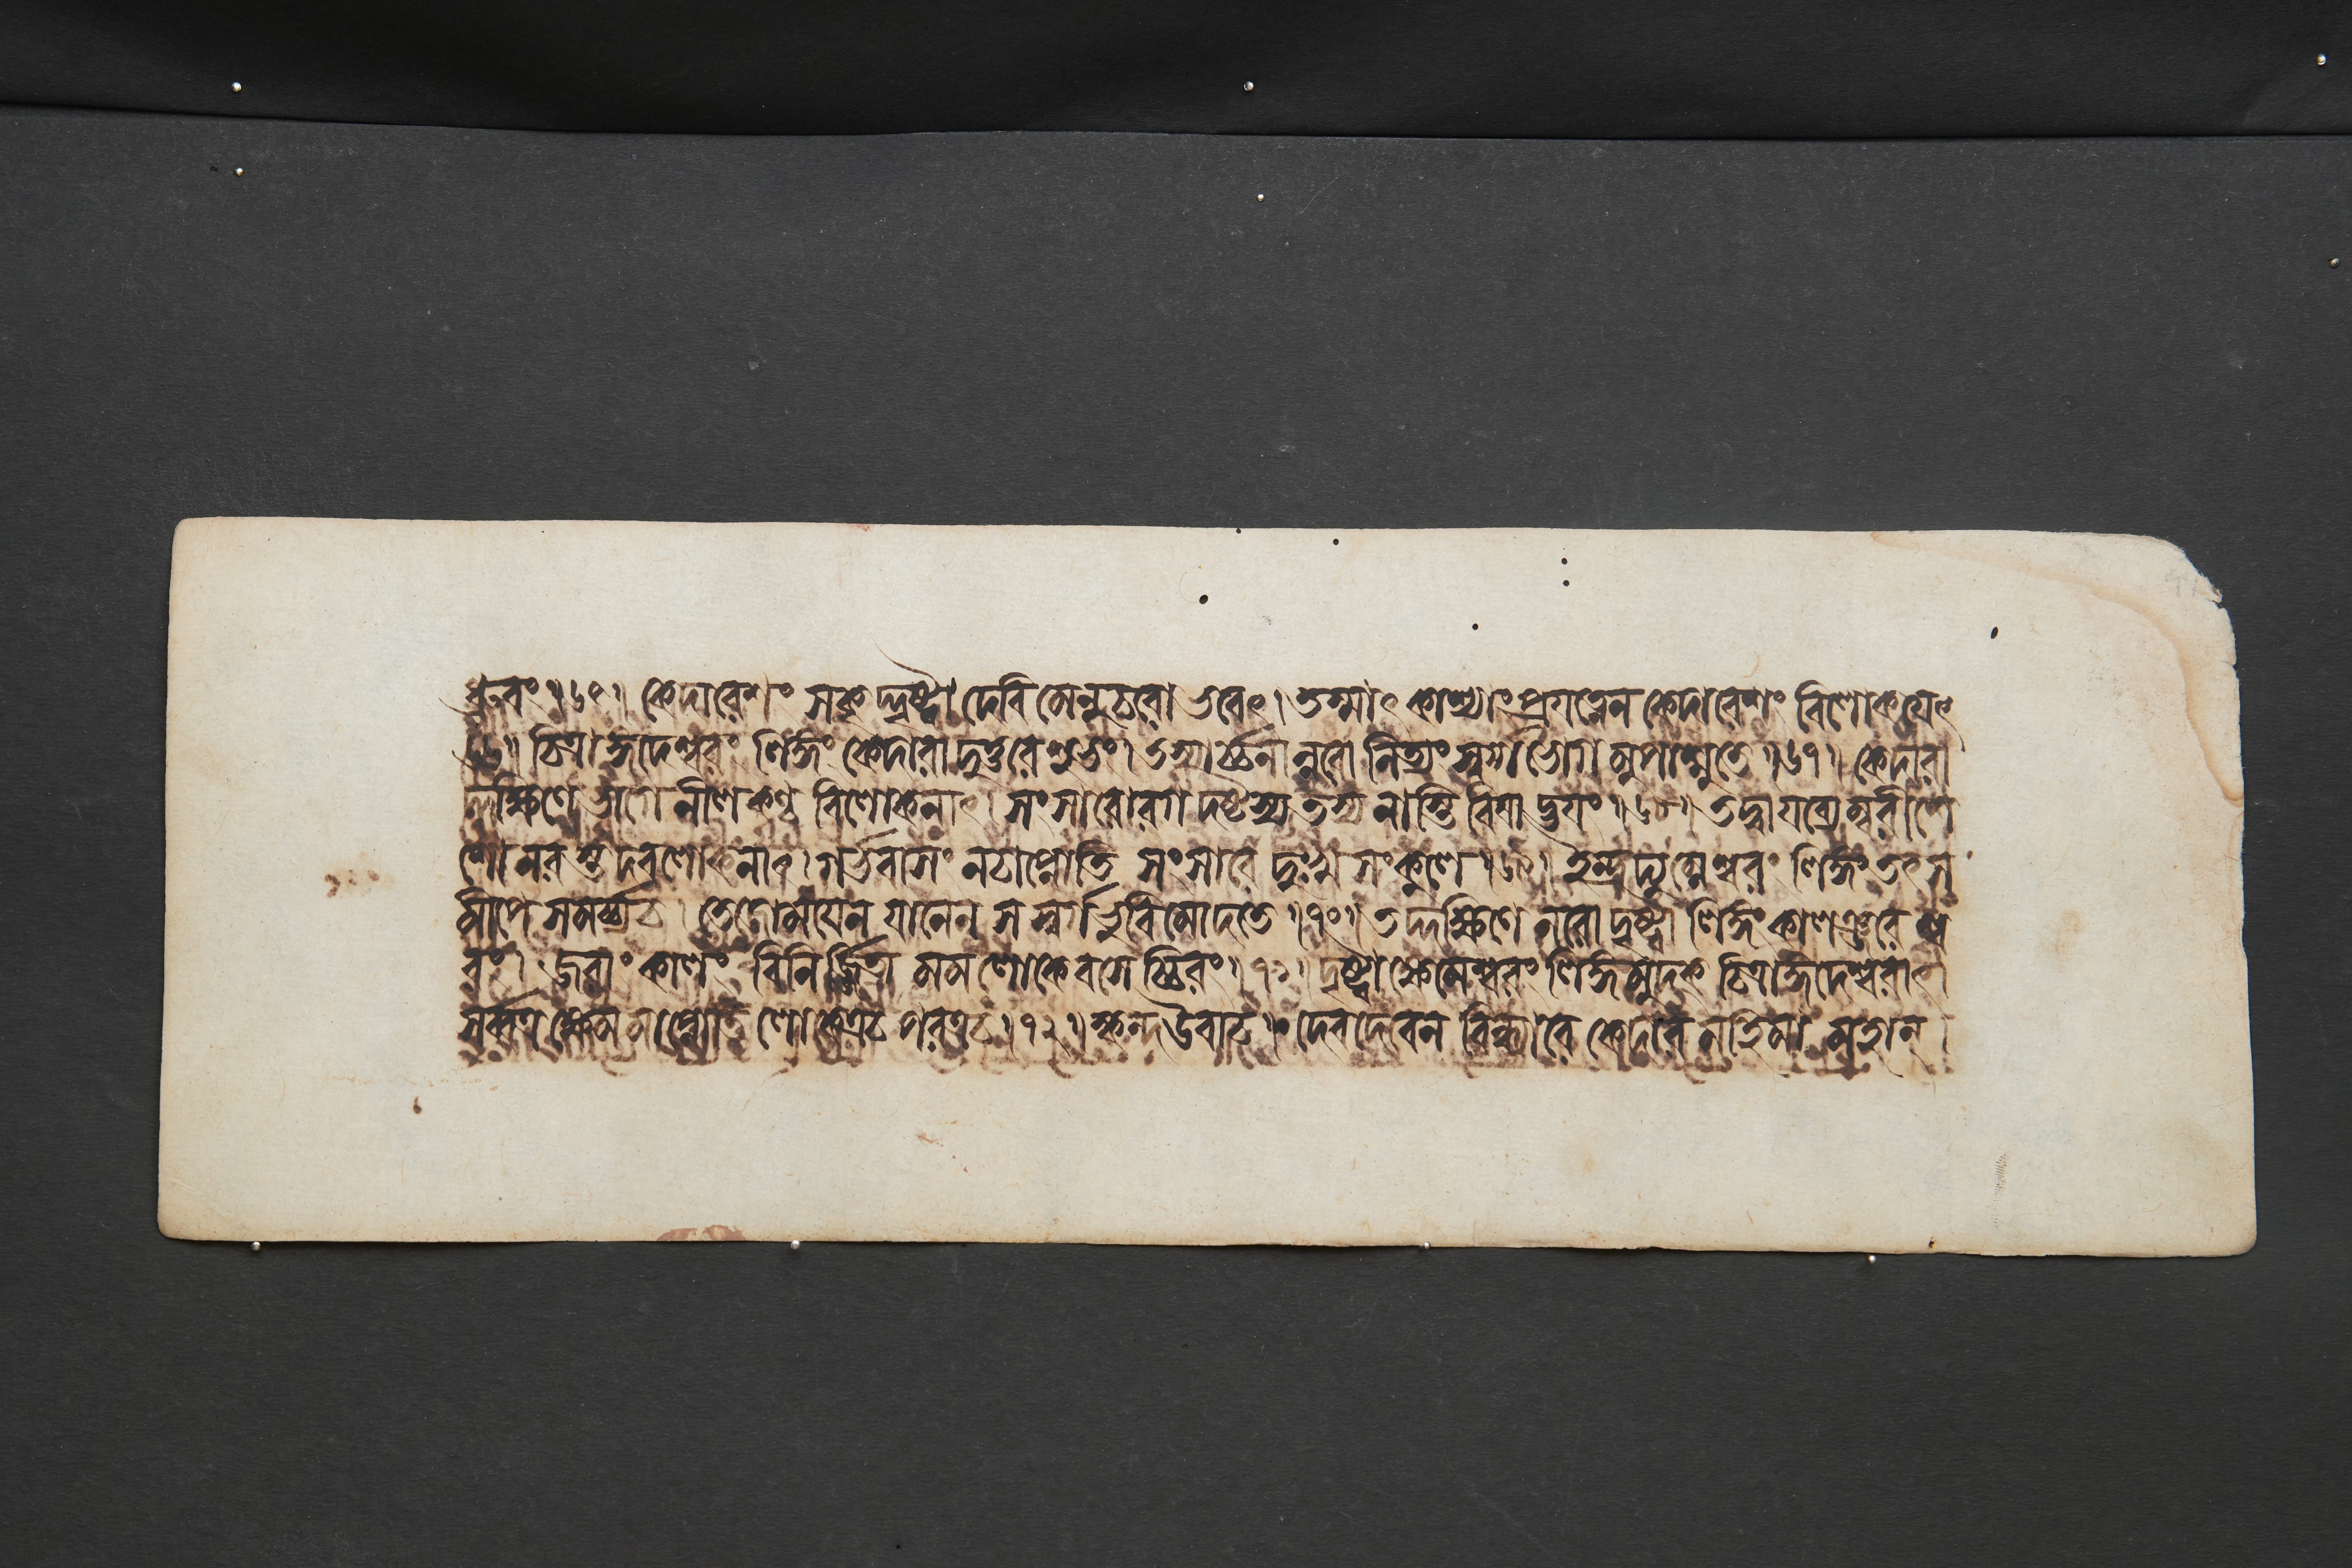 ধ্রুবং॥৬৫॥ কেদারেশং সকৃদ্দৃষ্ট্বা দেবি মেনুচরো ভবেৎ। তস্মাৎ কাশ্যাং প্রযত্নেন কেদারেশং বিলোকয়েৎ
৬৬॥ চিত্রাঙ্গদেশ্বরং লিঙ্গং কেদারাদুত্তরে শুভং। তস্যার্চ্চনান্নরো নিত্যং স্বর্গভোগানুপাশ্নুতে॥৬৭॥ কেদারা
দ্দক্ষিণে ভাগে নীলকণ্ঠ বিলোকনাৎ। সংসারোরগদষ্টস্য তস্য নাস্তি বিষাদ্ভয়ং॥৬৮॥ তদ্বায়ব্যেম্বরীষে
শো নরস্তদবলোকনাৎ। গর্ভবাসং নচাপ্নোতি সংসারে দুঃখসংকুলে॥৬৯॥ ইন্দ্রদ্যুম্নেশ্বরং লিঙ্গং তৎস
মীপে সমর্চ্চ্যচ। তেজোময়েন যানেন স স্বর্গভুবি মোদতে॥৭০॥ তদ্দক্ষিণে নরো দৃষ্ট্বা লিঙ্গং কালঞ্জরেশ্ব
রং। জরাং কালং বিনির্জ্জিত্য মম লোকে বসেচ্চিরং।৭১। দৃষ্ট্বা ক্ষেমেশ্বরং লিঙ্গমুদক্ চিত্রাঙ্গদেশ্বরাৎ
সর্ব্বত্র ক্ষেমমাপ্নোতি লোকেত্রচ পরত্রচ॥৭২॥ স্কন্দ উবাচ॥ দেবদেবেন বিন্ধ্যারে কেদার মহিমা মহান্।